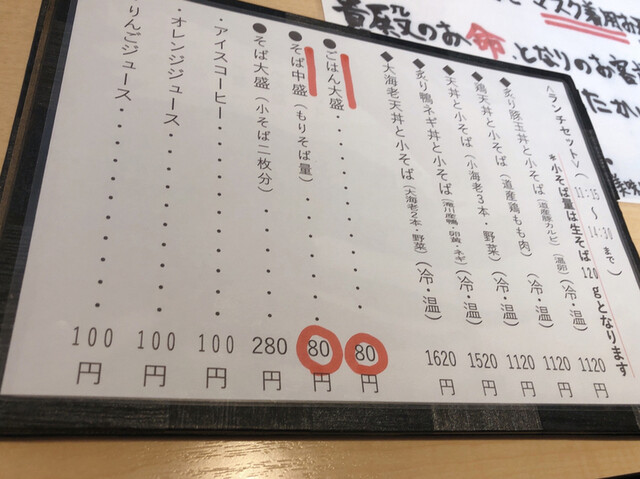 マスク着用お
貴殿のお命、となりのお客
たか
<ランチセット> (11:15～14:30まで)
*小そば量は生そば120gとなります
◆炙り豚玉丼と小そば(道産豚カルビ)(温卵)(冷・温) 1120円
◆鶏天丼と小そば(道産鶏もも肉)(冷・温) 1120円
◆天丼と小そば(小海老3本・野菜)(冷・温) 1120円
◆炙り鴨ネギ丼と小そば(滝川産鴨・卵黄・ネギ)(冷・温) 1520円
◆大海老天丼と小そば(大海老2本・野菜)(冷・温) 1620円
●ごはん大盛・・・・・・・・・80円
●そば中盛(もりそば量)・・・・80円
●そば大盛(小そば二枚分)・・・・280円
・アイスコーヒー・・・・・・・・100円
・オレンジジュース・・・・・・・100円
・りんごジュース・・・・・・・・100円